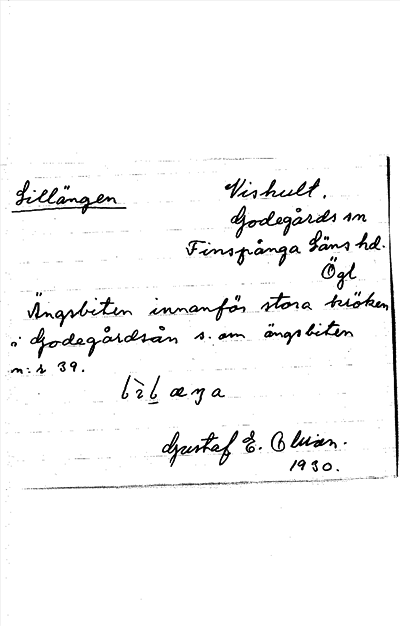 Lillängen
Viskult.
Godegårds sn
Finspånga Läns hd.
Ögl
Ängsbiten innanför stora kröken
i Godegårdsån s. om ängsbiten
n:r 39.
Gustaf E.
1930.